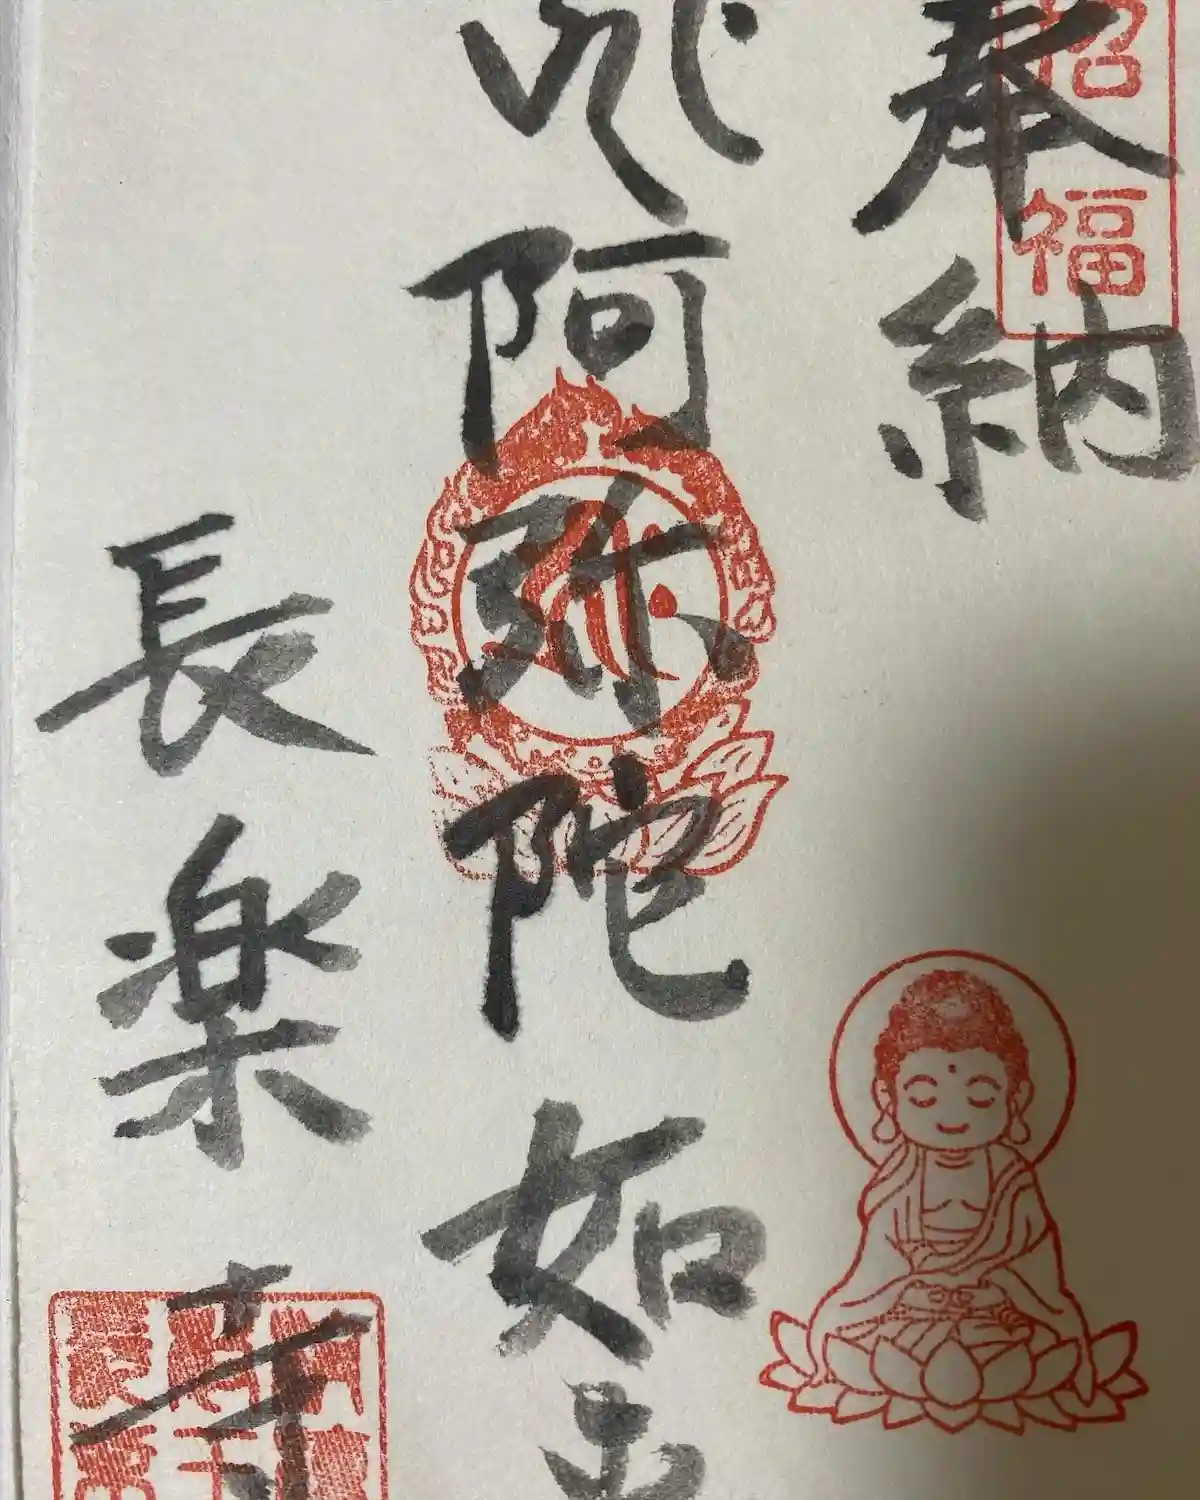 奉納
招福
阿弥陀如来
長楽寺